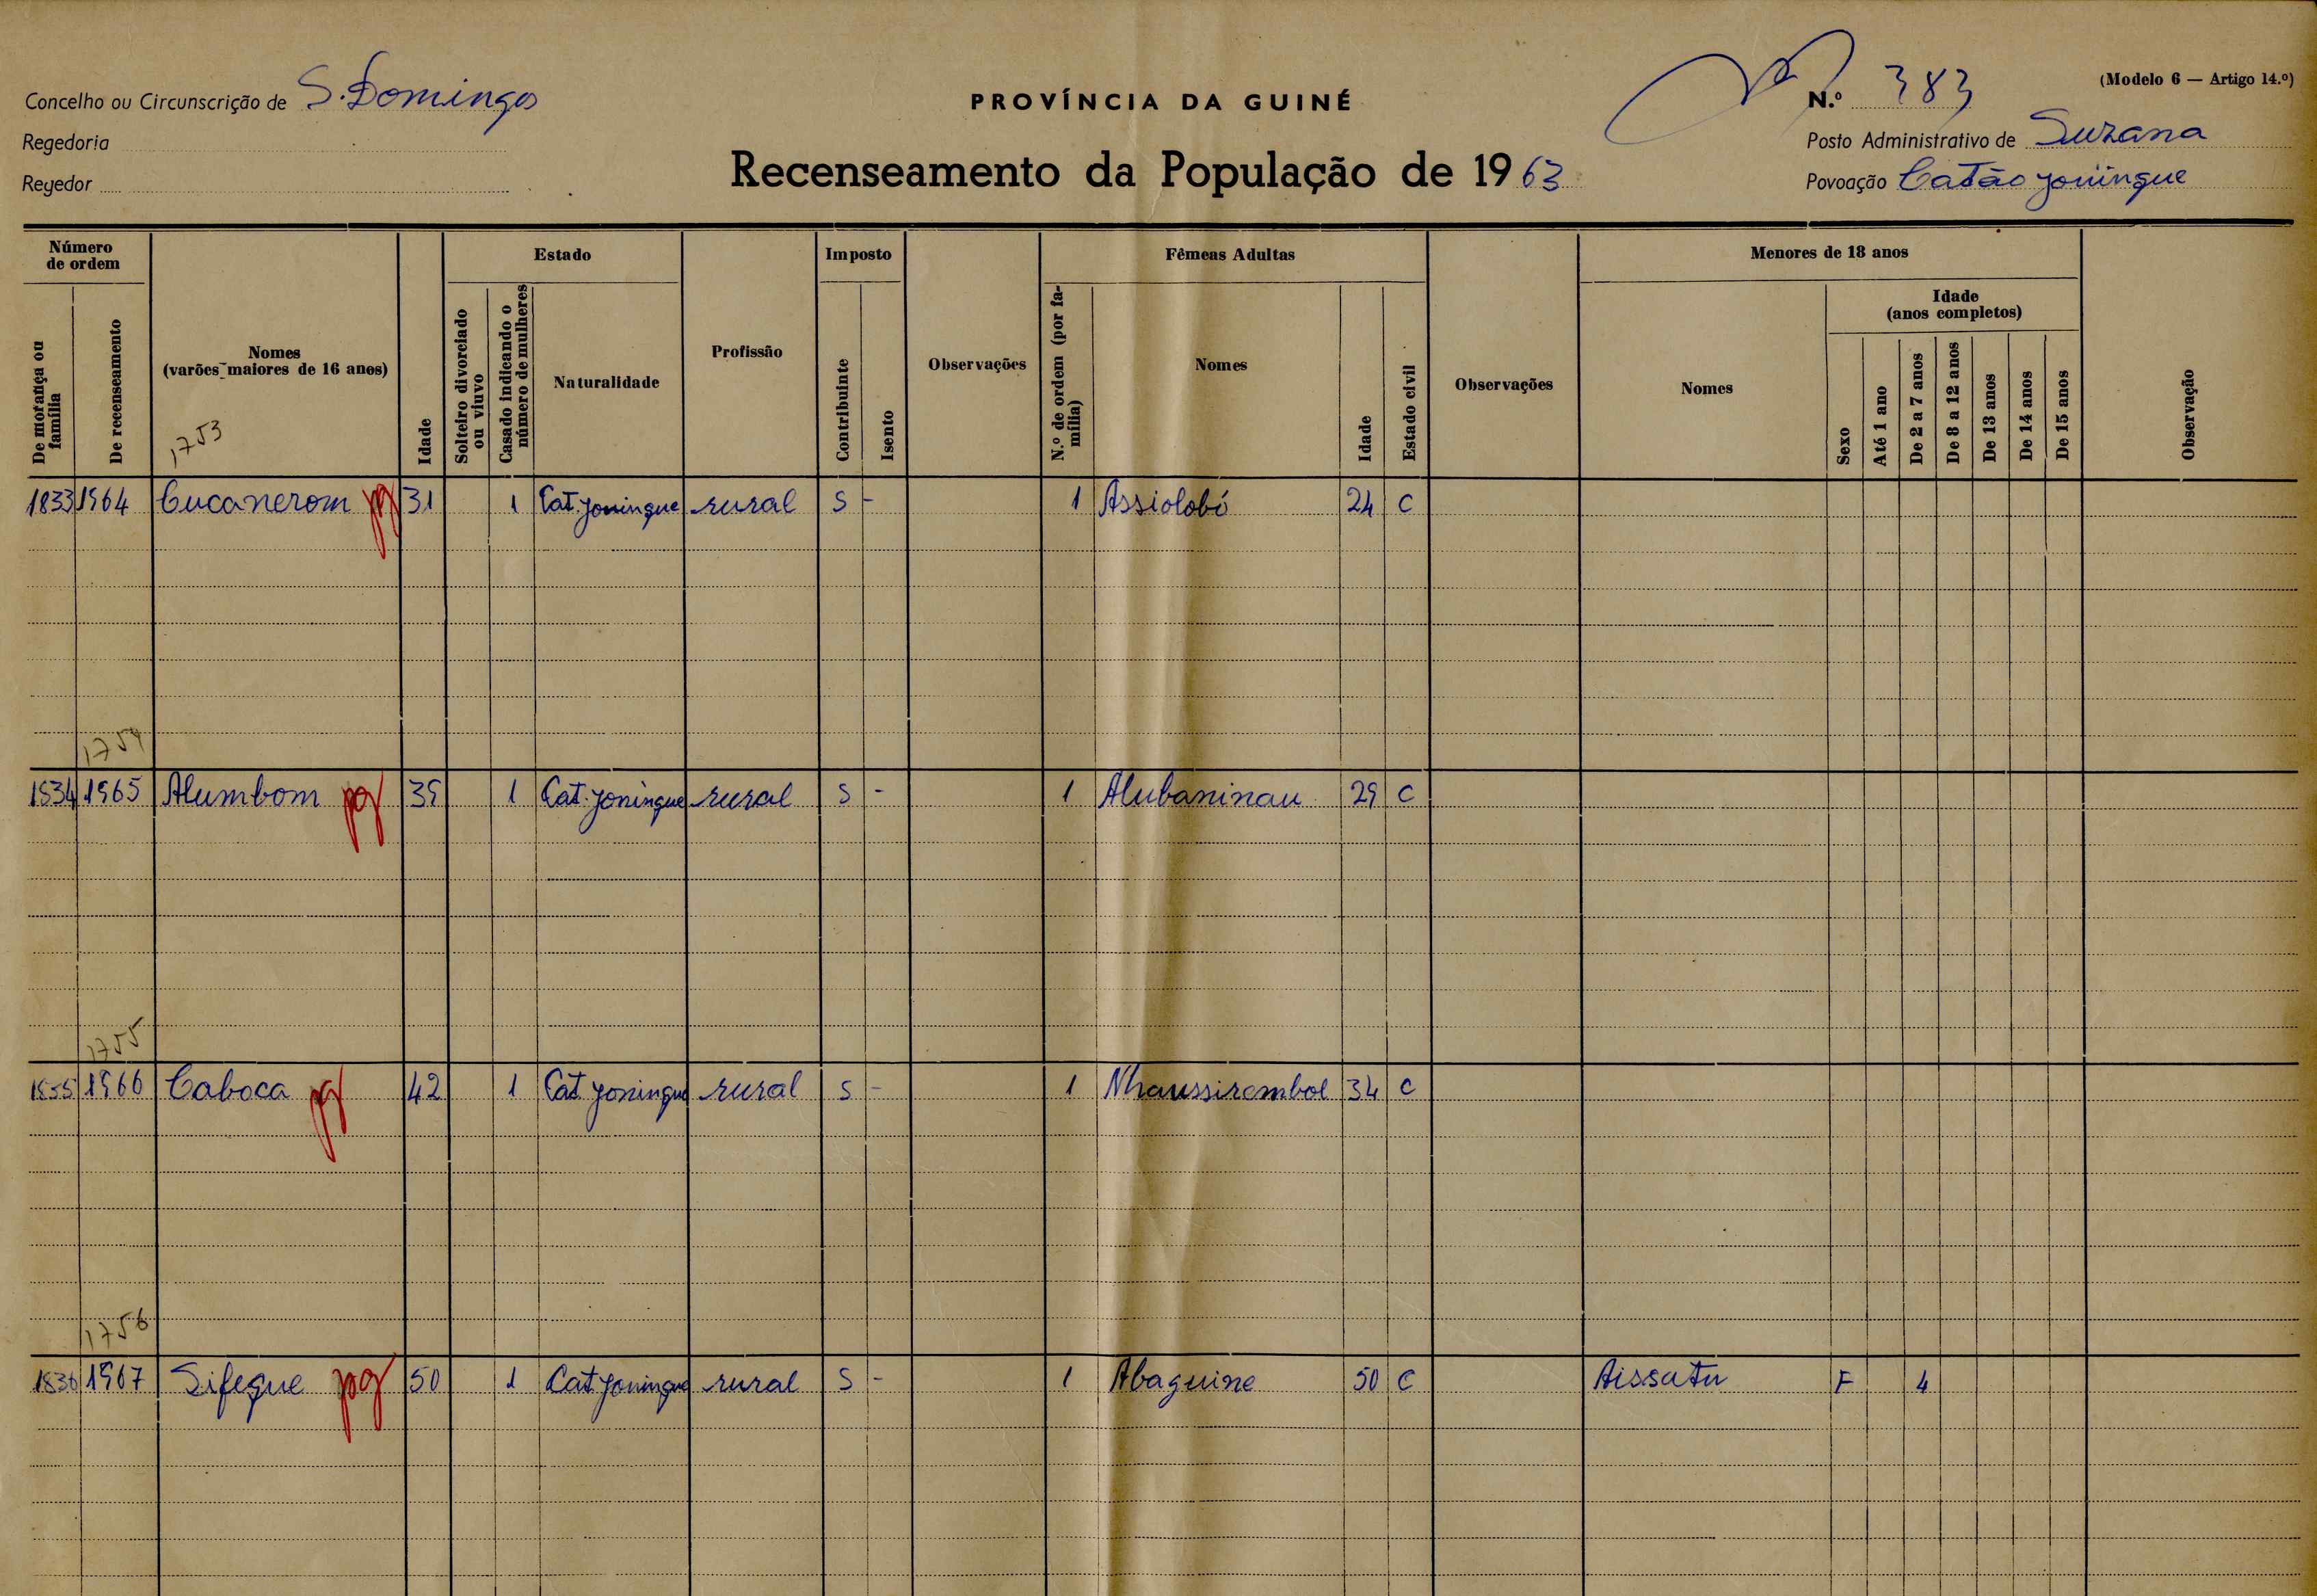 Concelho ou Circunscrição de S. Domingos
Regedoria
Regedor
PROVÍNCIA DA GUINÉ
Recenseamento da População de 1963
(Modelo 6 — Artigo 14.º)
N.º 383
Posto Administrativo de Suzana
Povoação Catão Joningue
Número de ordem
De morança ou família
De recenseamento
Nomes
(varões maiores de 16 anos)
1753
Idade
Estado
Solteiro divorciado ou viuvo
Casado indicando o número de mulheres
Naturalidade
Profissão
Imposto
Contribuinte
Isento
Observações
Fêmeas Adultas
N.º de ordem (por família)
Nomes
Idade
Estado civil
Observações
Menores de 18 anos
Nomes
Idade
(anos completos)
Sexo
Até 1 ano
De 2 a 7 anos
De 8 a 12 anos
De 13 anos
De 14 anos
De 15 anos
Observação
1833 1964 Cucanerom pg 31 1 Cat. Joningue rural S - 1 Assiolobó 24 C
1754
1834 1965 Alumbom pg 39 1 Cat. Joningue rural S - 1 Alubaninau 29 C
1755
1835 1966 Caboca pg 42 1 Cat Joningue rural S - 1 Nhaussirembol 34 C
1756
1836 1967 Sifeque pg 50 1 Cat Joningue rural S - 1 Abaguine 50 C Aissatu F 4